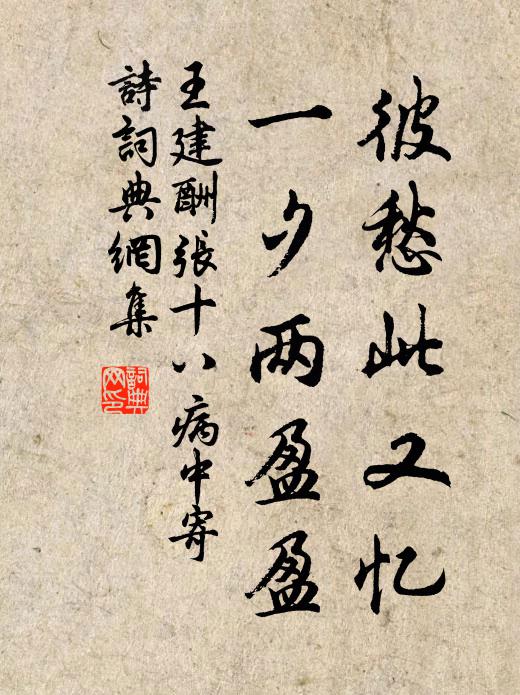 彼愁此又忆
一夕两盈盈
王建酬張十八病中寄
詩詞典網集
詞典
网印